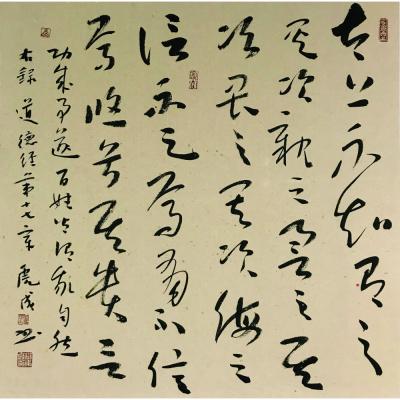 太上不知有之
其次親之譽之其
次畏之其次侮之
信不足焉有不信
焉悠兮其貴言
功成事遂百姓皆謂我自然
右錄道德經第十七章